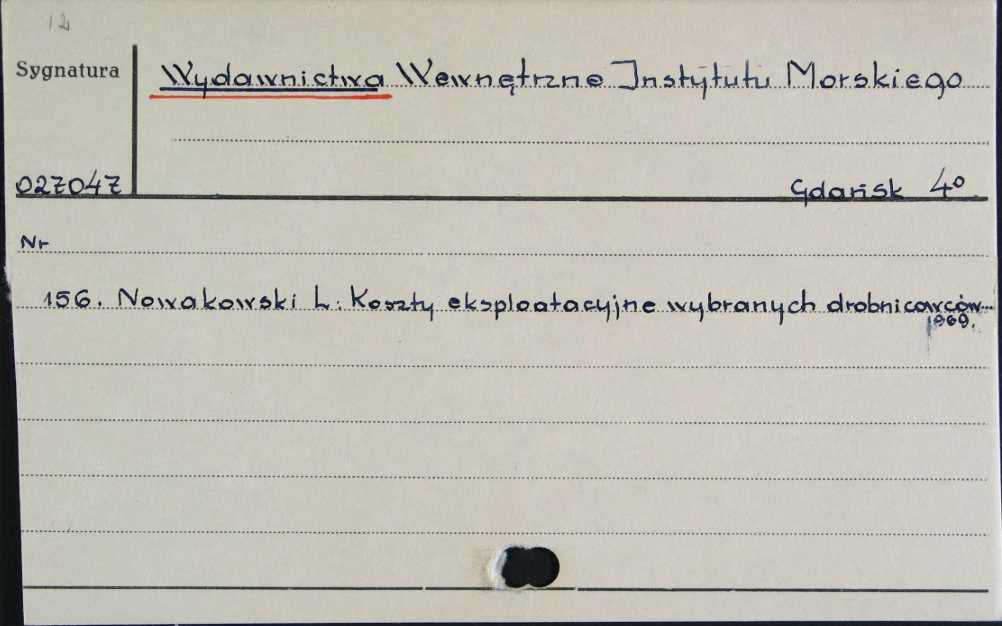 12
Sygnatura
Wydawnictwa Wewnętrzne Instytutu Morskiego
027047
Gdańsk 4°
Nr
156. Nowakowski L.: Koszty eksploatacyjne wybranych drobnicowców...
1969.